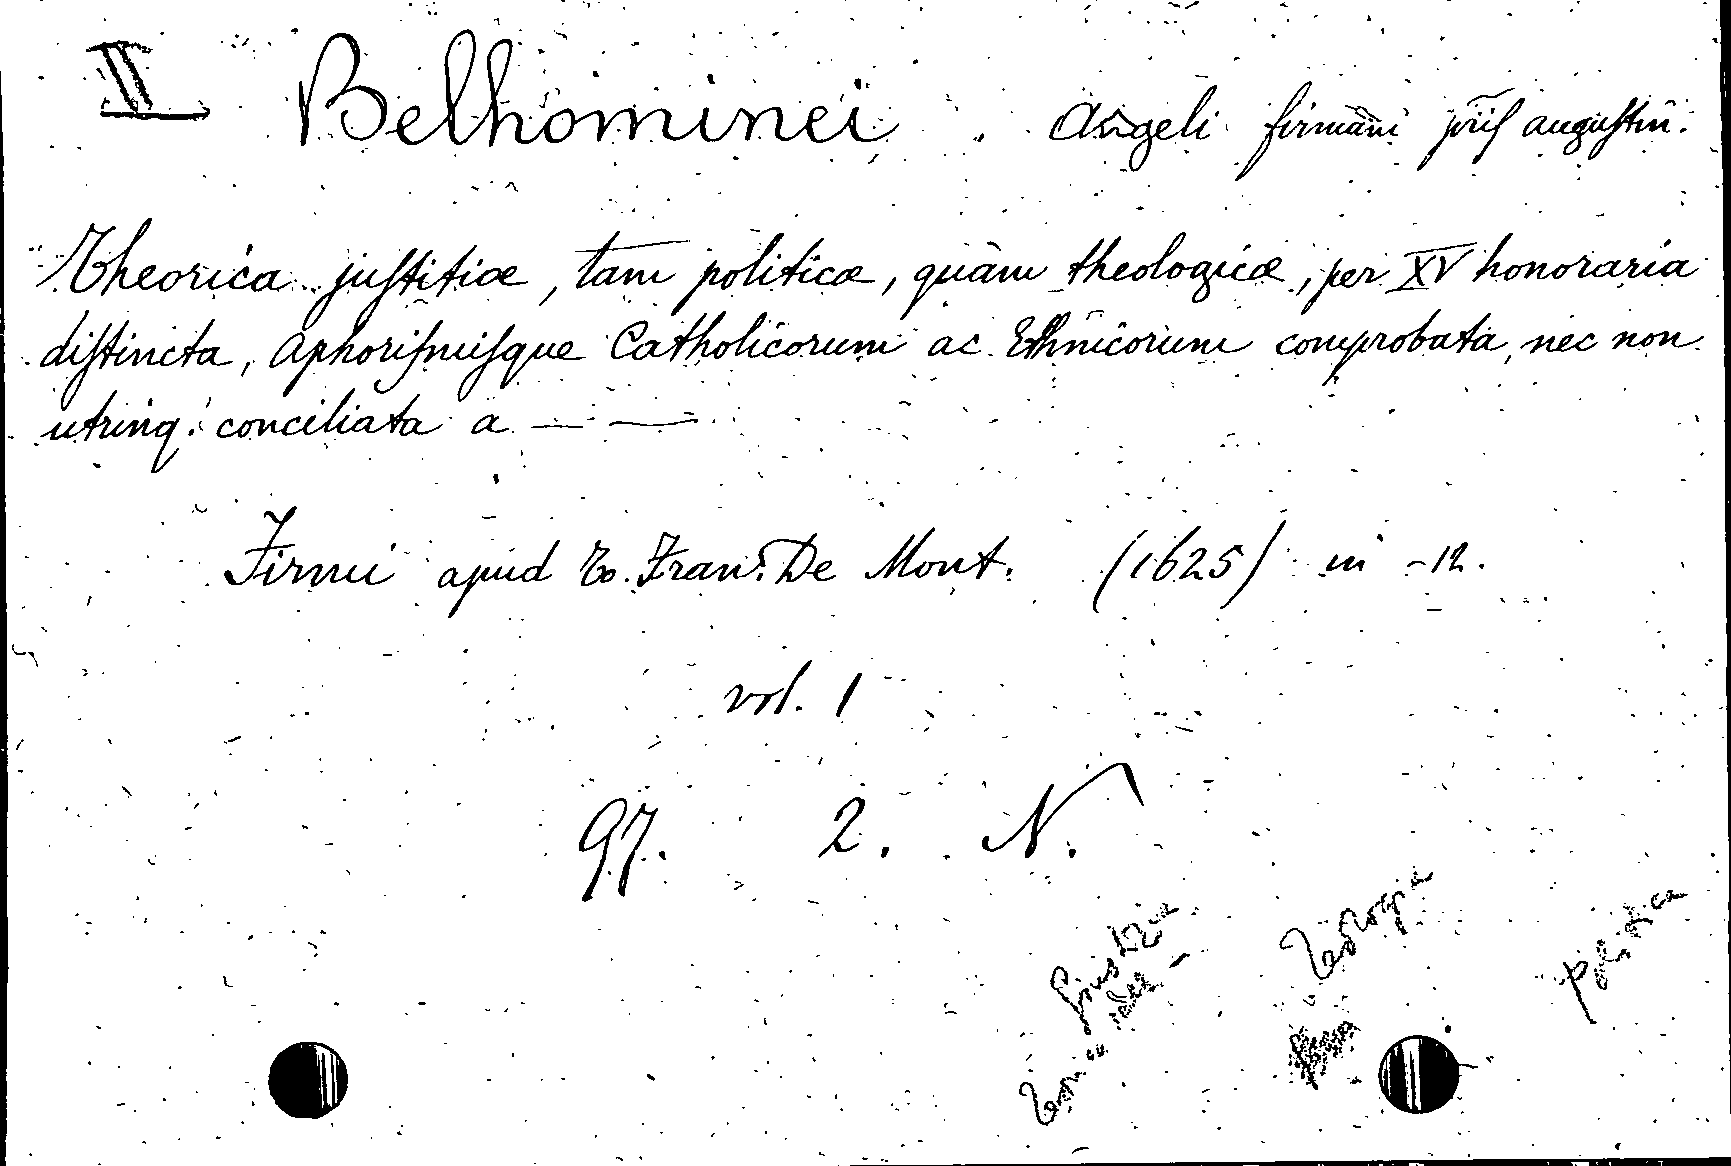 II Belhominei. Angeli firmani p̄ris auguſtin.
Theorica juſtitiæ, tam politicæ, quàm theologicæ, per XV honoraria
diſtincta, Aphoriſmiſque Catholicorum ac Ethnicorum comprobata, nec non
utrinq: conciliata a — —
Firmi apud Jo. Fran. De Mont. (1625) in -12.
vol. 1
97. 2. N.
Teoria della Giustizia
Teologia
politica